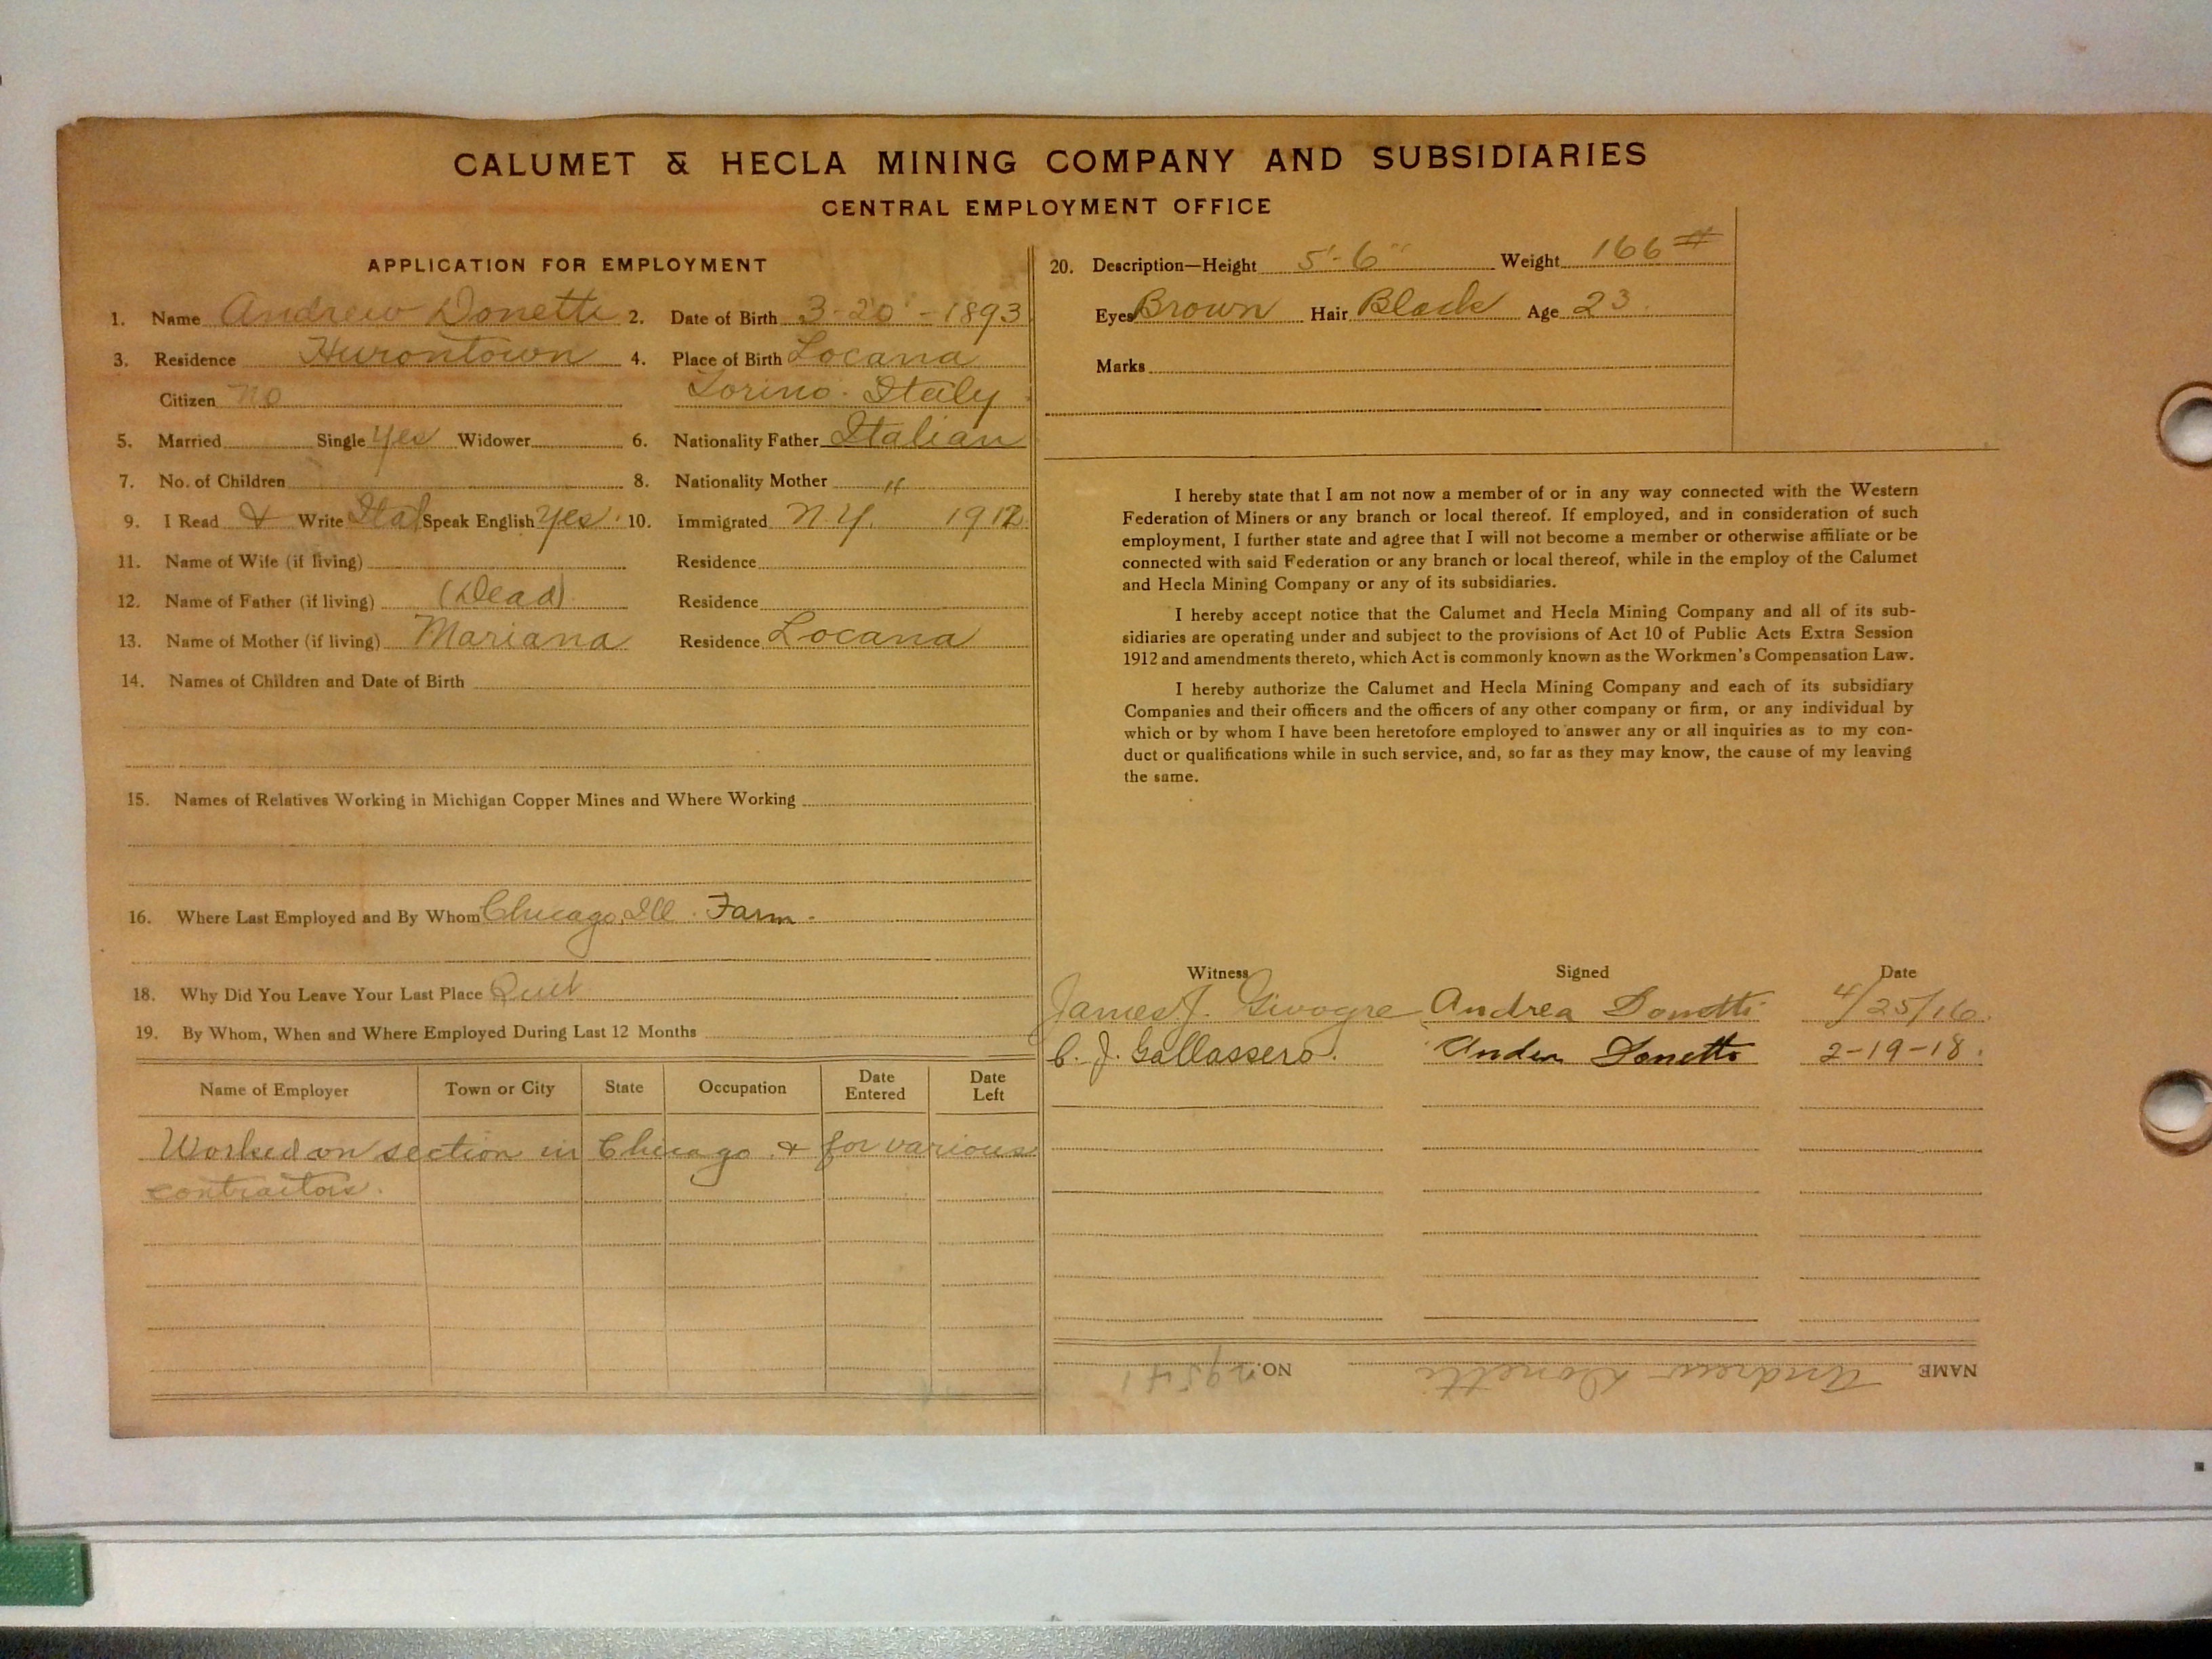 CALUMET & HECLA MINING COMPANY AND SUBSIDIARIES
CENTRAL EMPLOYMENT OFFICE
APPLICATION FOR EMPLOYMENT
1. Name Andrew Donetti 2. Date of Birth 3-20-1893
3. Residence Hurontown 4. Place of Birth Locana
Citizen No Torino. Italy
5. Married Single Yes Widower 6. Nationality Father Italian
7. No. of Children 8. Nationality Mother "
9. I Read & Write Ital Speak English Yes. 10. Immigrated N.Y. 1912
11. Name of Wife (if living) Residence
12. Name of Father (if living) (Dead) Residence
13. Name of Mother (if living) Mariana Residence Locana
14. Names of Children and Date of Birth
15. Names of Relatives Working in Michigan Copper Mines and Where Working
16. Where Last Employed and By Whom Chicago, Ill. Farm.
18. Why Did You Leave Your Last Place Quit
19. By Whom, When and Where Employed During Last 12 Months
Name of Employer Town or City State Occupation Date Entered Date Left
Worked on section in Chicago. & for various
contractors.
20. Description—Height 5'-6" Weight 166 #
Eyes Brown Hair Black Age 23.
Marks
I hereby state that I am not now a member of or in any way connected with the Western
Federation of Miners or any branch or local thereof. If employed, and in consideration of such
employment, I further state and agree that I will not become a member or otherwise affiliate or be
connected with said Federation or any branch or local thereof, while in the employ of the Calumet
and Hecla Mining Company or any of its subsidiaries.
I hereby accept notice that the Calumet and Hecla Mining Company and all of its sub-
sidiaries are operating under and subject to the provisions of Act 10 of Public Acts Extra Session
1912 and amendments thereto, which Act is commonly known as the Workmen's Compensation Law.
I hereby authorize the Calumet and Hecla Mining Company and each of its subsidiary
Companies and their officers and the officers of any other company or firm, or any individual by
which or by whom I have been heretofore employed to answer any or all inquiries as to my con-
duct or qualifications while in such service, and, so far as they may know, the cause of my leaving
the same.
Witness Signed Date
James J. Andrea Donetti 4/25/16.
C. J. Gallassero. Andrea Donetti 2-19-18.
NAME Andrew Donetti NO.